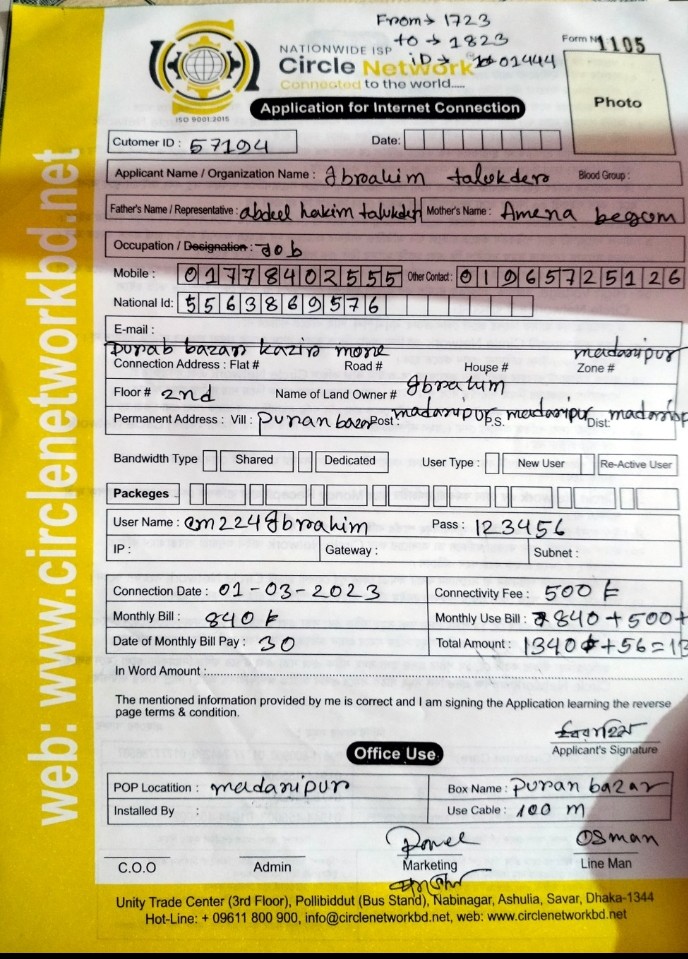 From → 1723
to → 1823
iD → 01444
Form № 1105
NATIONWIDE ISP
Circle Network
Connected to the world.....
ISO 9001:2015
Application for Internet Connection
Photo
Cutomer ID : 57194 Date:
Applicant Name / Organization Name : Ibrahim talukder Blood Group :
Father's Name / Representative : abdul hakim talukder Mother's Name : Amena begom
Occupation / Designation : Job
Mobile : 01778402555 Other Contact : 01965725126
National Id: 5563869576
E-mail :
puran bazar kazir more madaripur
Connection Address : Flat # Road # House # Zone #
Floor # 2nd Name of Land Owner # Ibrahim
Permanent Address : Vill : puran bazar Post : madaripur P.S. madaripur Dist: madarip
Bandwidth Type Shared Dedicated User Type : New User Re-Active User
Packeges
User Name : cm224Ibrahim Pass : 123456
IP : Gateway : Subnet :
Connection Date : 01-03-2023 Connectivity Fee : 500 ৳
Monthly Bill : 840 ৳ Monthly Use Bill : 840+500+
Date of Monthly Bill Pay : 30 Total Amount : 1340 +56=13
In Word Amount :
The mentioned information provided by me is correct and I am signing the Application learning the reverse
page terms & condition.
Applicant's Signature
Office Use
POP Locatition : madaripur Box Name : puran bazar
Installed By : Use Cable : 100 m
Osman
C.O.O Admin Marketing Line Man
Unity Trade Center (3rd Floor), Pollibiddut (Bus Stand), Nabinagar, Ashulia, Savar, Dhaka-1344
Hot-Line: + 09611 800 900, info@circlenetworkbd.net, web: www.circlenetworkbd.net
web: www.circlenetworkbd.net